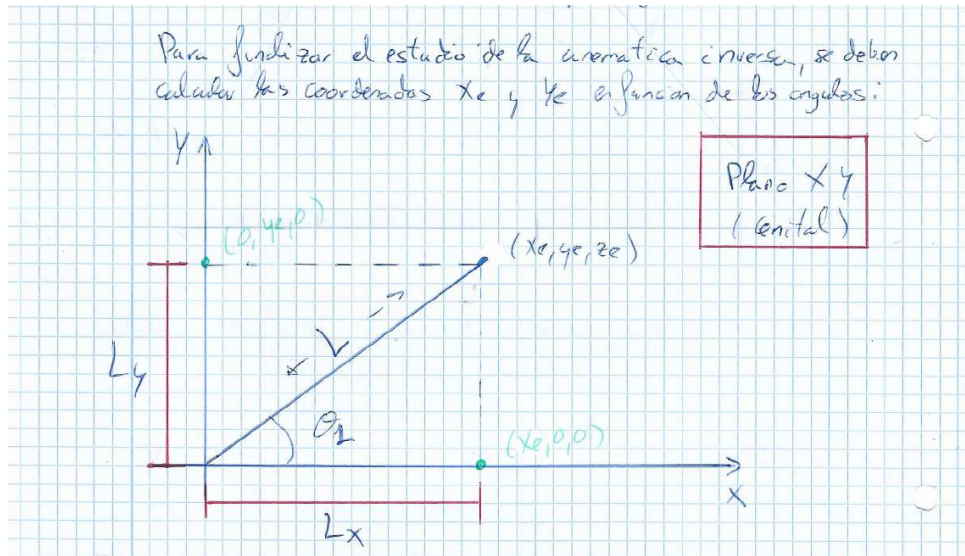 Para finalizar el estudio de la cinematica inversa, se deben
calcular las coordenadas Xe y Ye en funcion de los angulos:
Y
Plano XY
(Cenital)
(0, ye, 0)
(xe, ye, ze)
V
Ly
θ1
(xe, 0, 0)
X
Lx